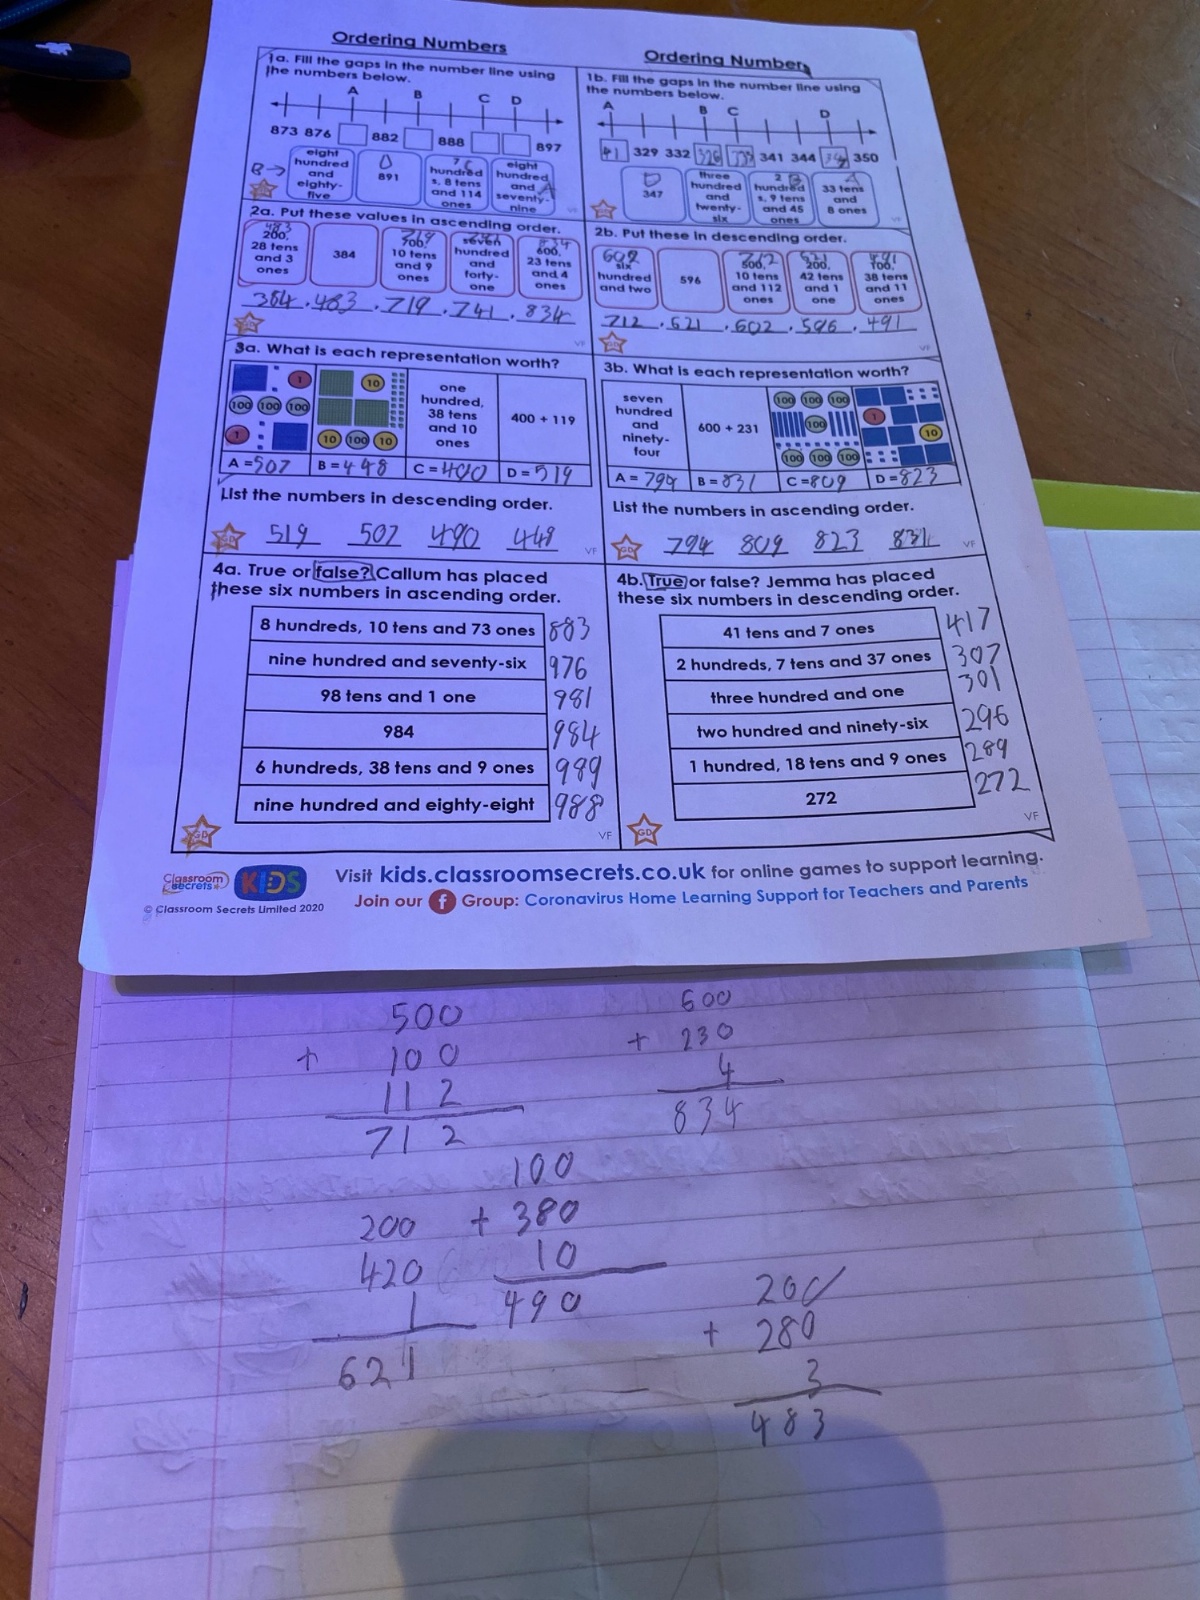 Ordering Numbers
1a. Fill the gaps in the number line using
the numbers below.
A B C D
873 876 882 888 897
B→
eight
hundred
and
eighty-
five
D
891
7 C
hundred
s, 8 tens
and 114
ones
eight
hundred
and A
seventy-
nine
VF
2a. Put these values in ascending order.
483
200,
28 tens
and 3
ones
384
719
700,
10 tens
and 9
ones
741
seven
hundred
and
forty-
one
834
600,
23 tens
and 4
ones
384, 483, 719, 741, 834
GD
VF
3a. What is each representation worth?
1
100 100 100
1
10
10 100 10
one
hundred,
38 tens
and 10
ones
400 + 119
A = 507 B = 448 C = 400 D = 519
List the numbers in descending order.
519 507 490 448
GD
VF
4a. True or false? Callum has placed
these six numbers in ascending order.
8 hundreds, 10 tens and 73 ones 883
nine hundred and seventy-six 976
98 tens and 1 one 981
984 984
6 hundreds, 38 tens and 9 ones 989
nine hundred and eighty-eight 988
GD
VF
Ordering Numbers
1b. Fill the gaps in the number line using
the numbers below.
A B C D
41 329 332 326 341 344 350
D
347
three
hundred
and
twenty-
six
2 B
hundred
s, 9 tens
and 45
ones
A
33 tens
and
8 ones
VF
2b. Put these in descending order.
602
six
hundred
and two
596
712
500,
10 tens
and 112
ones
621
200,
42 tens
and 1
one
491
100,
38 tens
and 11
ones
712, 621, 602, 596, 491
GD
VF
3b. What is each representation worth?
seven
hundred
and
ninety-
four
600 + 231
100 100 100
100
100 100 100
1
10
A = 794 B = 831 C = 809 D = 823
List the numbers in ascending order.
794 809 823 831
GD
VF
4b. True or false? Jemma has placed
these six numbers in descending order.
41 tens and 7 ones 417
2 hundreds, 7 tens and 37 ones 307
three hundred and one 301
two hundred and ninety-six 296
1 hundred, 18 tens and 9 ones 289
272 272
GD
VF
Classroom
Secrets
KIDS
© Classroom Secrets Limited 2020
Visit kids.classroomsecrets.co.uk for online games to support learning.
Join our f Group: Coronavirus Home Learning Support for Teachers and Parents
500
+ 100
112
712
600
+ 230
4
834
200
420
1
621
100
+ 380
10
490
200
+ 280
3
483